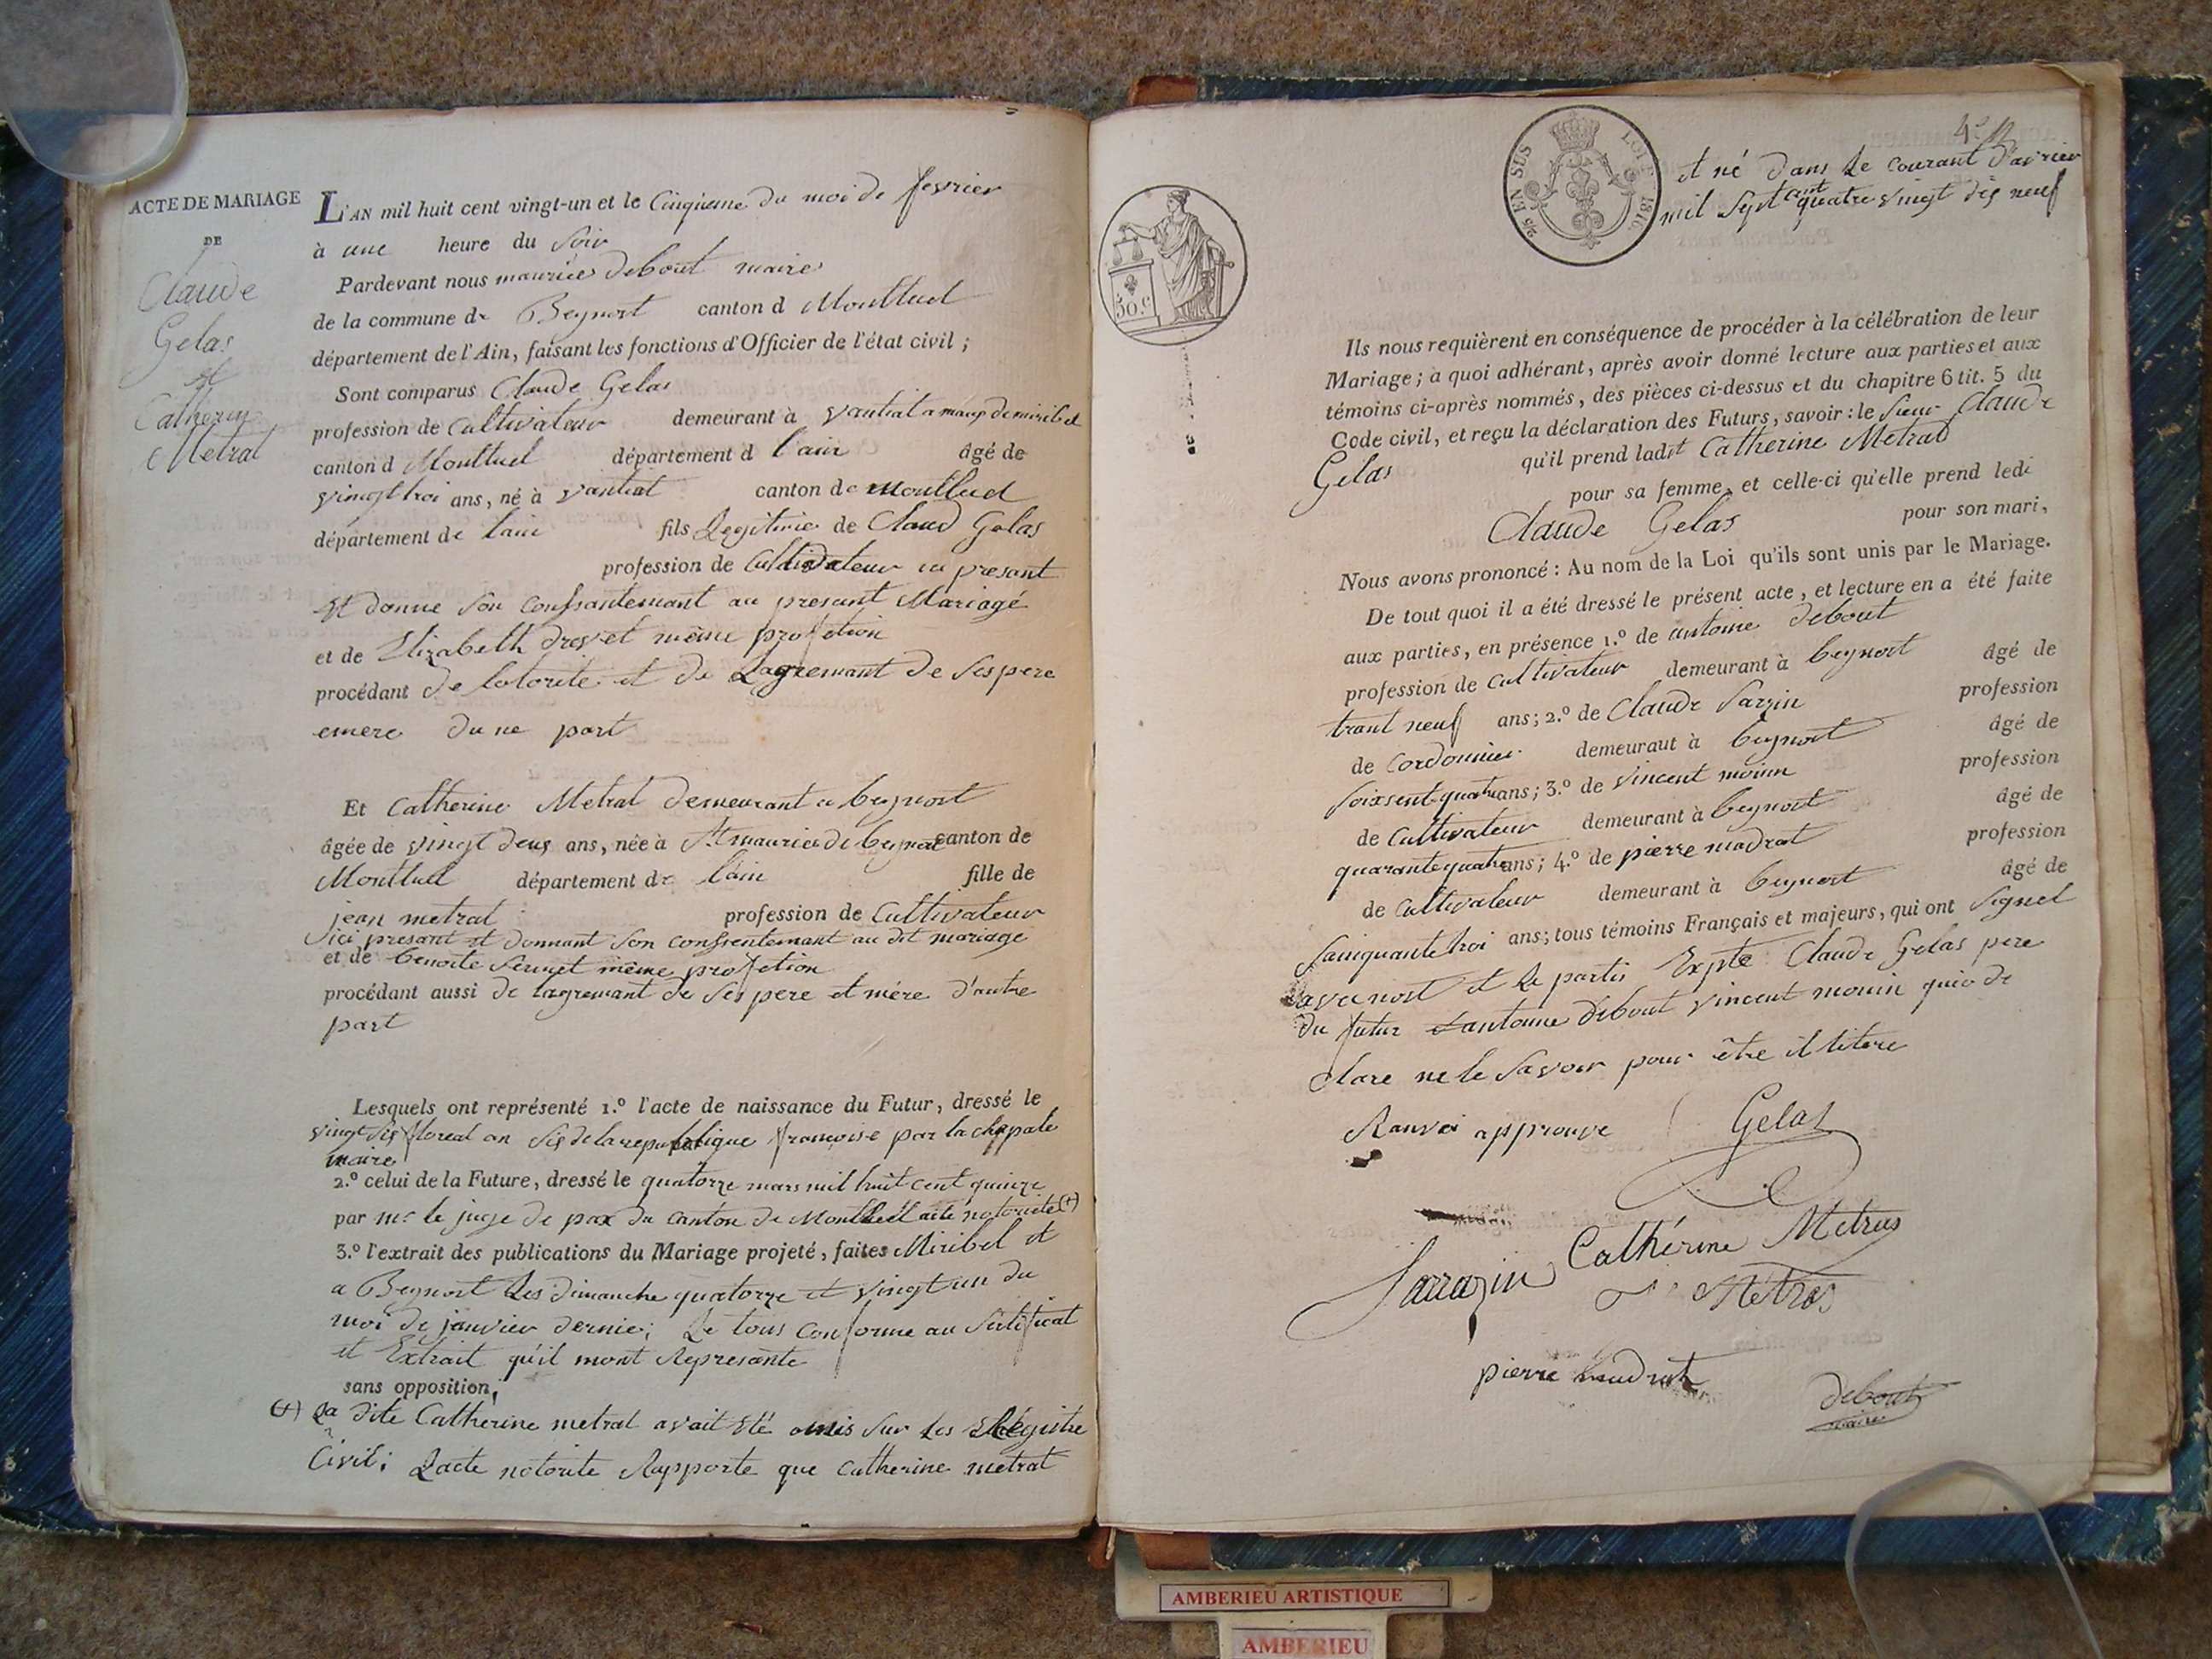 ACTE DE MARIAGE
DE
Claude
Gelas
et
Catherin
Metral
L'AN mil huit cent vingt-un et le Cinquieme du moi de fevrier
à une heure du Soir
Pardevant nous maurice debout maire
de la commune de Beynost canton d Montluel
département de l'Ain, faisant les fonctions d'Officier de l'état civil ;
Sont comparus Claude Gelas
profession de Cultivateur demeurant à de miribel
canton d Montluel département d l'ain âgé de
vingt troi ans, né à canton de montluel
département de lain fils Legitime de Claud Gelas
profession de Cultivateur ici presant
et donne son confsantemant au presant Mariage
et de Elizabeth drevet même profetion
procédant de lotorité et de Lagremant de Ses pere
emere du ne part
Et Catherine Metral demeurant a beynost
âgée de vingt deux ans, née à St maurice de beynost canton de
Montluel département de lain fille de
jean metral profession de Cultivateur
ici presant et donnant Son confsentemant au dit mariage
et de benoite même profetion
procédant aussi de lagremant de Ses pere et mére d'autre
part
Lesquels ont représenté 1.º l'acte de naissance du Futur, dressé le
vingt Six floreal an Six de la republique françoise par la chapale
maire
2.º celui de la Future, dressé le quatorze mars mil huit cent quinze
par mr le juge de pax du canton de Montluel acte notorieté (+)
3.º l'extrait des publications du Mariage projeté, faites Miribel et
a Beynost Les dimanche quatorze et vingt un du
moi de janvier dernier Le tous conforme au Sertificat
et Extrait qu'il mont Represante
sans opposition,
(+) La dite Catherine metral avait été omis Sur Les Régistre
Civil ; Lacte notorite Rapporte que Catherine metral
4e
et né dans le courant d'avrier
mil Sept cant quatre vingt dix neuf
25 EN SUS
LOI DE 1816
50.c
Ils nous requièrent en conséquence de procéder à la célébration de leur
Mariage ; a quoi adhérant, après avoir donné lecture aux parties et aux
témoins ci-après nommés, des pièces ci-dessus et du chapitre 6 tit. 5 du
Code civil, et reçu la déclaration des Futurs, savoir : le Sieur Claude
Gelas qu'il prend ladit Catherine Metral
pour sa femme, et celle-ci qu'elle prend ledi
Claude Gelas pour son mari,
Nous avons prononcé : Au nom de la Loi qu'ils sont unis par le Mariage.
De tout quoi il a été dressé le présent acte, et lecture en a été faite
aux parties, en présence 1.º de antoine debout
profession de Cultivateur demeurant à beynost âgé de
trant neuf ans ; 2.º de Claude Sarzin profession
de Cordonnier demeuraut à beynost âgé de
Soixsent quatre ans ; 3.º de Vincent moinn profession
de Cultivateur demeurant à beynost âgé de
quarante quatre ans ; 4.º de pierre madrat profession
de Cultivateur demeurant à beynost âgé de
Sainquante troi ans ; tous témoins Français et majeurs, qui ont Signel
avec nost et le partis Expte Claude Gelas pere
du futur antoine debout vincent monin quio de
clare ne le Savoir pour être illitere
Ranvoi approuve
Gelas
Catherine Metras
Sarrazin
Métras
pierre madrat
debout
maire
AMBERIEU ARTISTIQUE
AMBERIEU